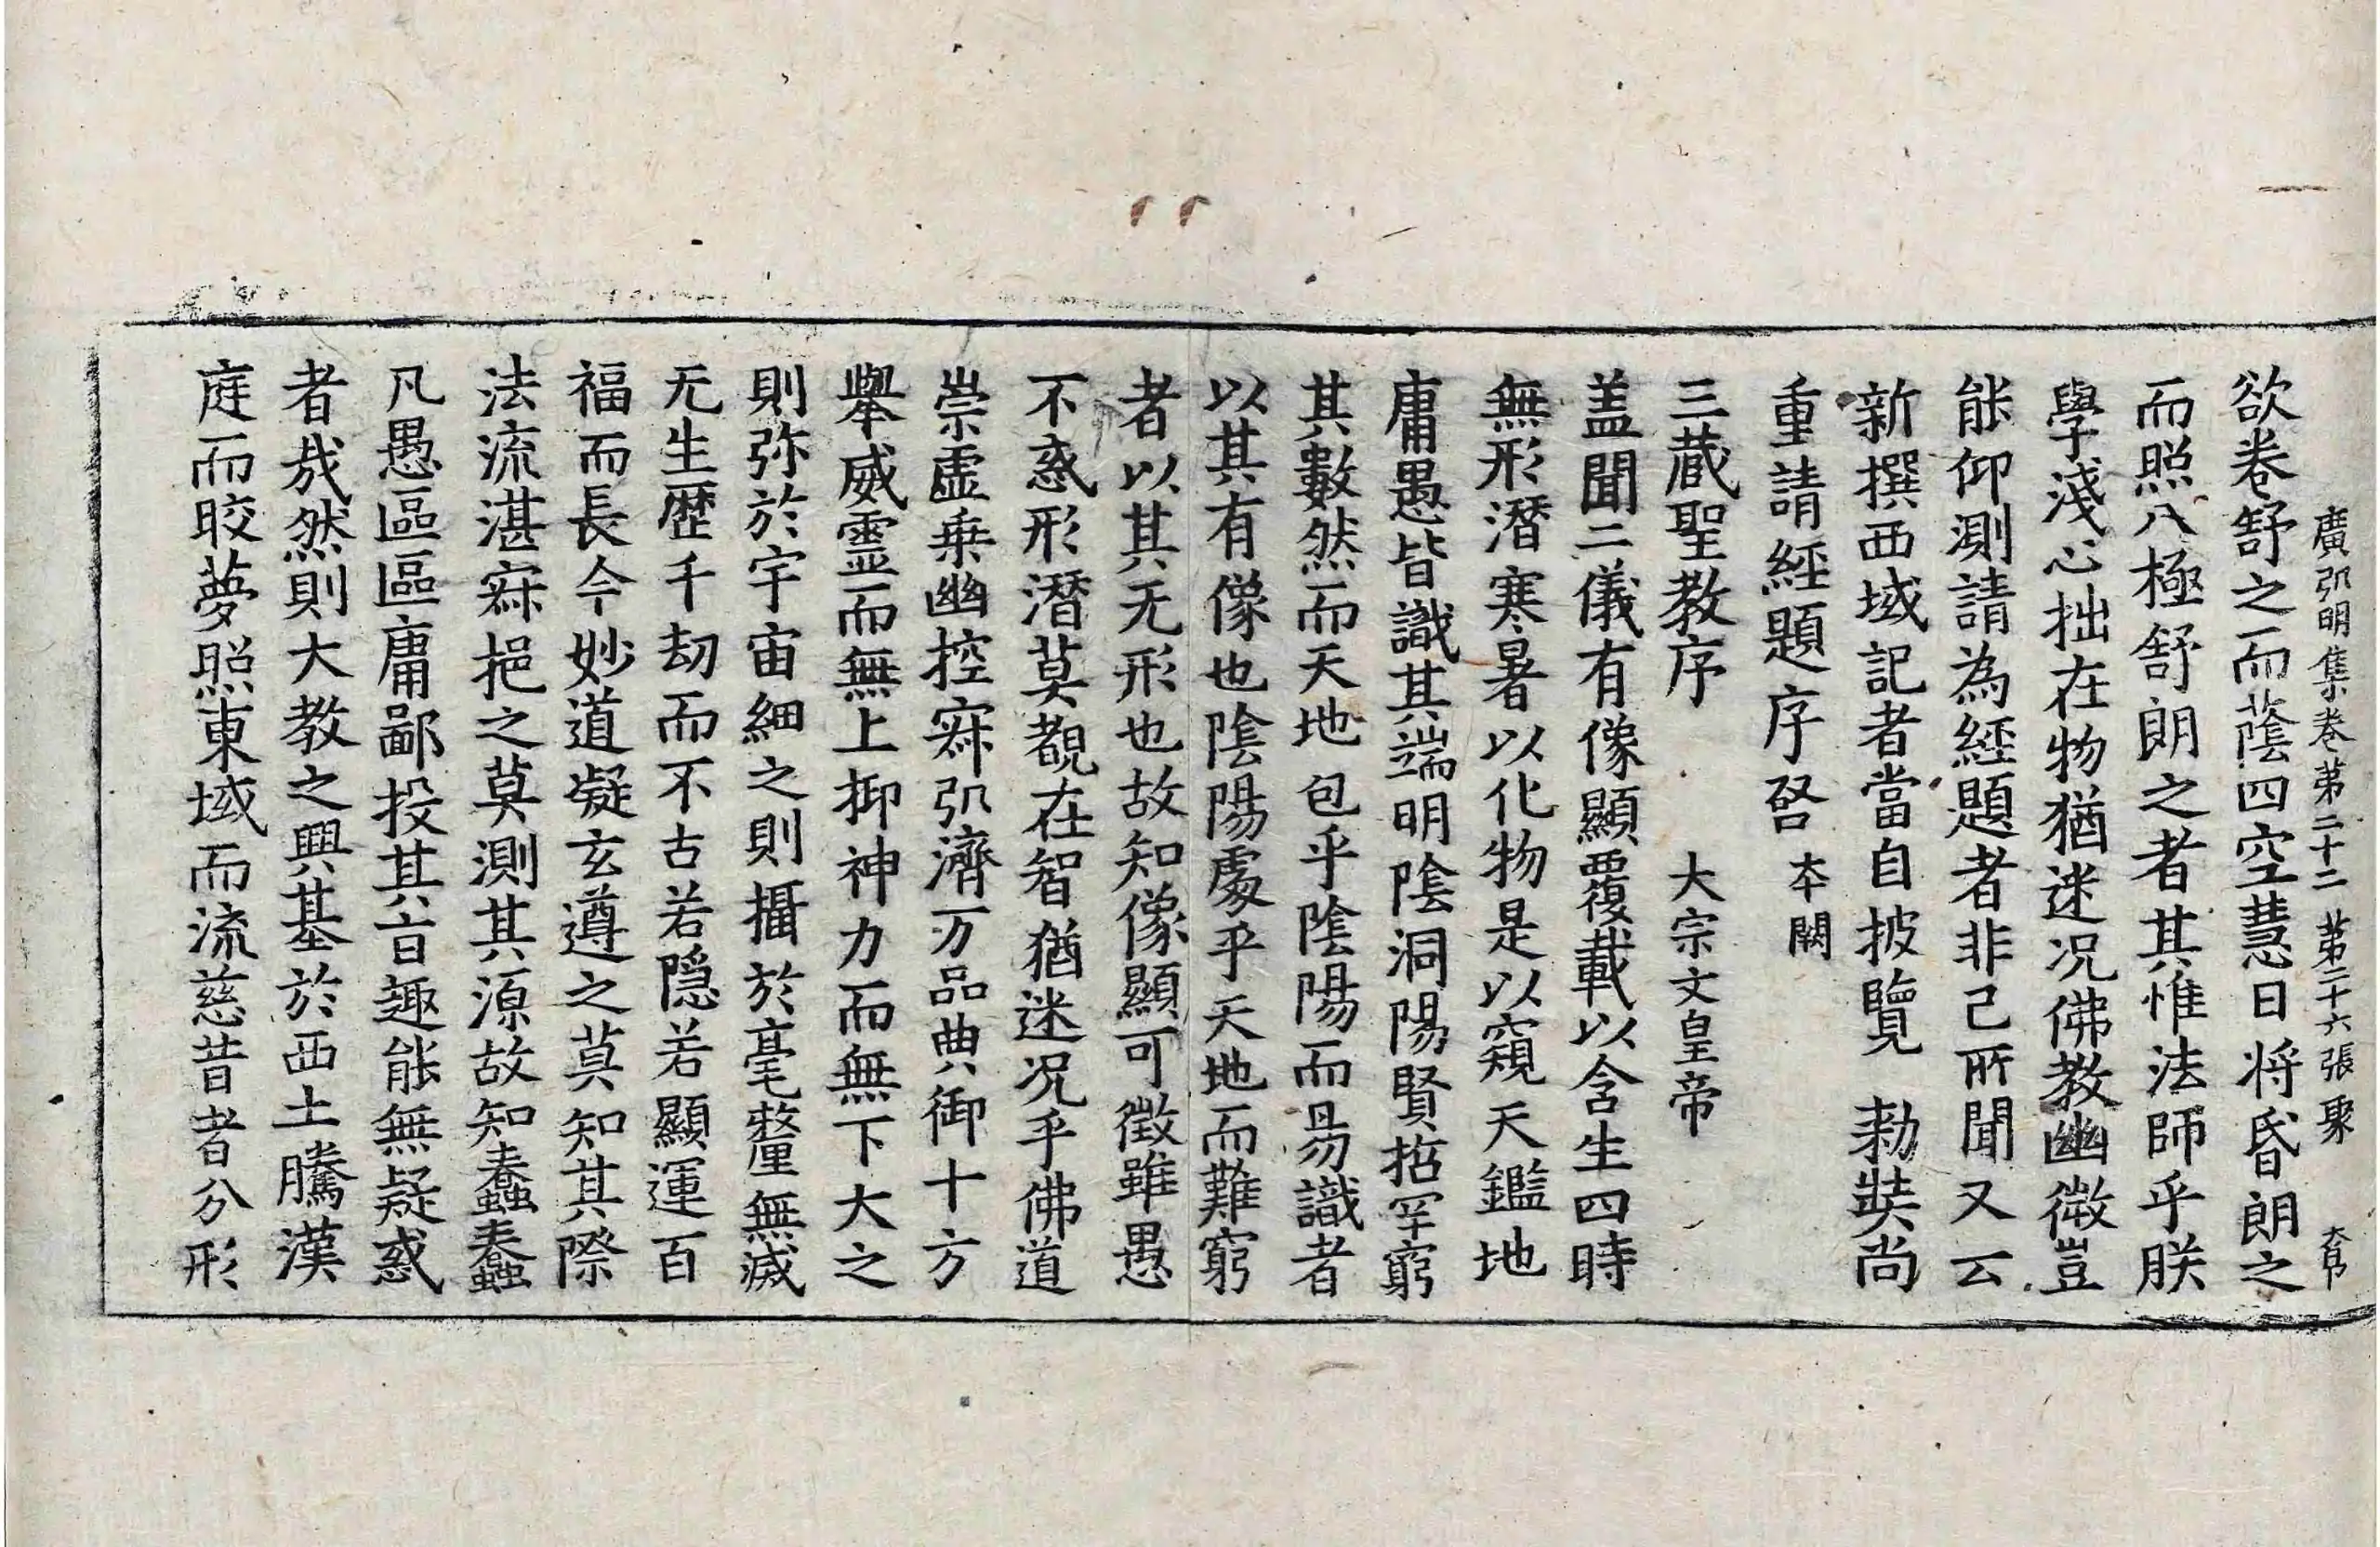 廣弘明集卷第二十二 第二十六張 聚
欲卷舒之而蔭四空慧日將昏朗之
而照八極舒朗之者其惟法師乎朕
學淺心拙在物猶迷况佛教幽微豈
能仰測請為經題者非己所聞又云
新撰西域記者當自披覽 勑奘尚
重請經題序啓 本闕
三藏聖教序 大宗文皇帝
盖聞二儀有像顯覆載以含生四時
無形潛寒暑以化物是以窺天鑑地
庸愚皆識其端明陰洞陽賢哲罕窮
其數然而天地包乎陰陽而易識者
以其有像也陰陽處乎天地而難窮
者以其无形也故知像顯可徵雖愚
不惑形潛莫覩在智猶迷况乎佛道
崇虛乗幽控寂弘濟万品典御十方
舉威靈而無上抑神力而無下大之
則弥於宇宙細之則攝於毫釐無滅
无生歷千劫而不古若隱若顯運百
福而長今妙道凝玄遵之莫知其際
法流湛寂挹之莫測其源故知蠢蠢
凡愚區區庸鄙投其旨趣能無疑惑
者㦲然則大教之興基於西土騰漢
庭而皎夢照東域而流慈昔者分形